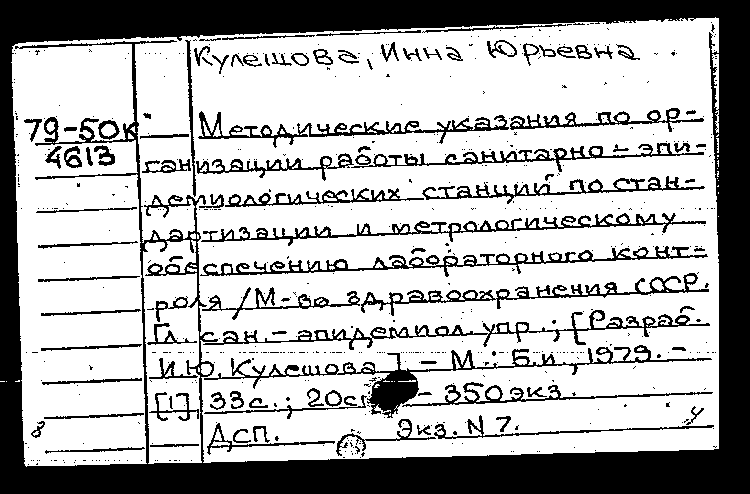 Кулешова, Инна Юрьевна
79-50к
4613
Методические указания по ор-
ганизации работы санитарно-эпи-
демиологических станций по стан-
дартизации и метрологическому
обеспечению лабораторного конт-
роля /М-во здравоохранения СССР.
Гл. сан.-эпидемиол. упр.; [Разраб.
И.Ю. Кулешова] - М.: Б.и., 1979. -
[1], 33с.; 20с - 350экз.
8 ДСП. Экз. N 7.